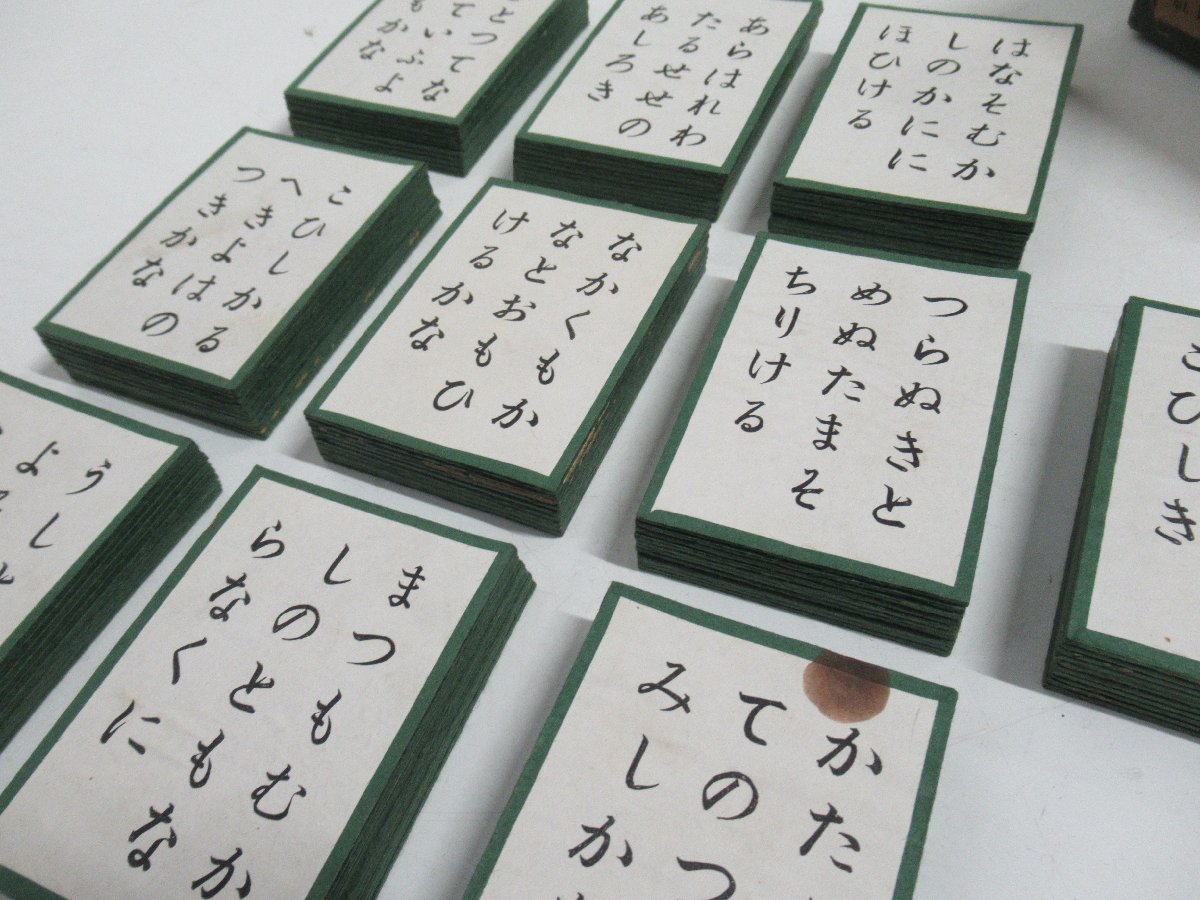 とつてな
ていふよ
もかな
あらはれわ
たるせせの
あしろき
はなそむか
しのかにに
ほひける
こひしかる
へきよはの
つきかな
なかくもか
なとおもひ
けるかな
つらぬきと
めぬたまそ
ちりける
ひしき
うし
よ
まつもむか
しのともな
らなくに
かた
てのつ
みしか